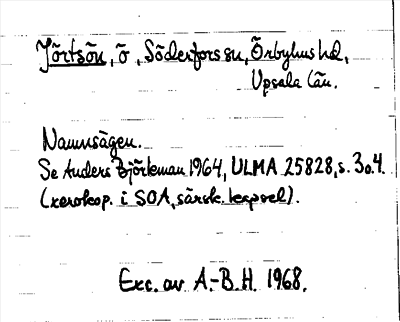 Jörtsön, ö, Söderfors sn, Örbyhus hd,
Upsala län.
Namnsägen.
Se Anders Björkman 1964, ULMA 25828, s. 3 o. 4.
(xerokop. i SOA, särsk. kapsel).
Exc. av A.-B.H. 1968.